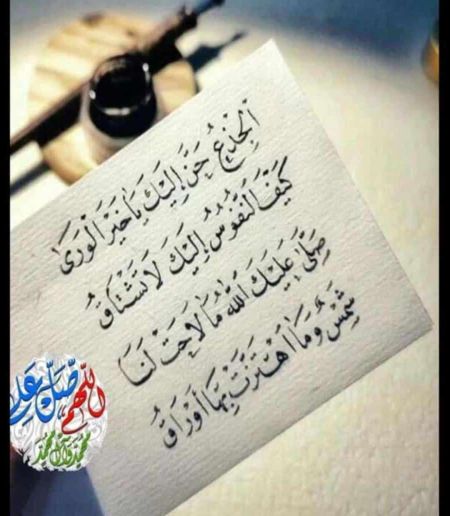 الْجِذْعُ حَنَّ إِلَيْكَ يَا خَيْرَ الْوَرَىٰ
كَيْفَ النُّفُوسُ إِلَيْكَ لَا تَشْتَاقُ
صَلَّى عَلَيْكَ اللَّهُ مَا لَاحَتْ لَنَا
شَمْسٌ وَمَا اهْتَزَّتْ بِهَا أَوْرَاقُ
اللهم صل على
محمد وآل محمد